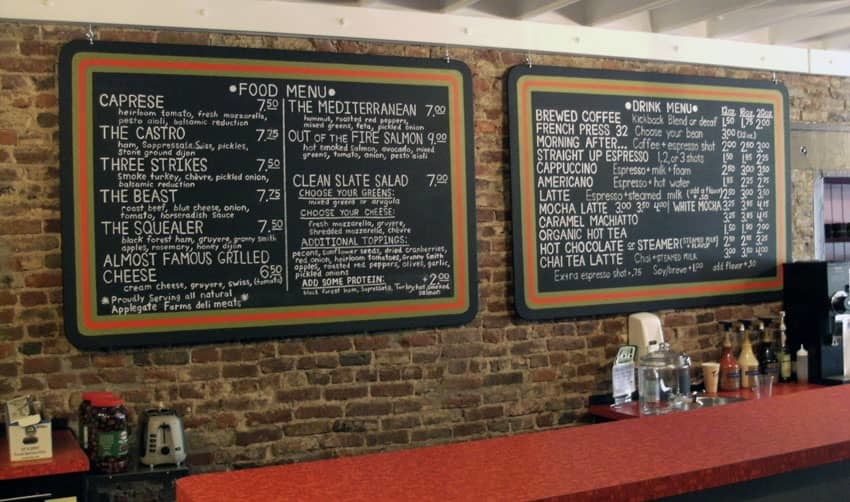 •FOOD MENU•
CAPRESE 7.50
heirloom tomato, fresh mozzarella,
pesto aioli, balsamic reduction
THE CASTRO 7.75
ham, Soppressata, Swiss, pickles,
Stone ground dijon
THREE STRIKES 7.50
Smoke turkey, chèvre, pickled onion
balsamic reduction
THE BEAST 7.75
roast beef, blue cheese, onion,
tomato, horseradish Sauce
THE SQUEALER 7.50
black forest ham, gruyere, granny smith
apples, rosemary, honey dijon
ALMOST FAMOUS GRILLED
CHEESE 6.50
cream cheese, gruyere, swiss, (tomato)
*Proudly Serving all natural
Applegate Farms deli meats*
THE MEDITERRANEAN 7.00
hummut, roasted red peppers,
mixed greens, feta, pickled onion
OUT OF THE FIRE SALMON 9.00
hot smoked salmon, avocado, mixed
greens, tomato, onion, pesto aioli
CLEAN SLATE SALAD 7.00
CHOOSE YOUR GREENS:
mixed greens or arugula
CHOOSE YOUR CHEESE:
fresh mozzarella, gruyere,
shredded mozzarella, chèvre
ADDITIONAL TOPPINGS:
pecans, sunflower seeds, dried cranberries,
red onion, heirloom tomatoes, Granny Smith
apples, roasted red peppers, olives, garlic,
pickled onions
ADD SOME PROTEIN: +2.00
black forest ham, Sopressata, Turkey, hot smoked
salmon
•DRINK MENU• 12oz. 16oz. 20oz.
BREWED COFFEE Kickback Blend or decaf 1.50 1.75 2.00
FRENCH PRESS 32 Choose your bean 3.00
MORNING AFTER... Coffee + espresso shot
STRAIGHT UP ESPRESSO 1, 2, or 3 shots
CAPPUCCINO Espresso + milk + foam
AMERICANO Espresso + hot water
LATTE Espresso + steamed milk (add a flavor +.50)
MOCHA LATTE 3.00 3.50 4.00 WHITE MOCHA
CARAMEL MACHIATTO
ORGANIC HOT TEA
HOT CHOCOLATE or STEAMER (STEAMED MILK + FLAVOR)
CHAI TEA LATTE Chai + STEAMED MILK
Extra espresso shot +.75 Soy/breve +1.00 add flavor +.50